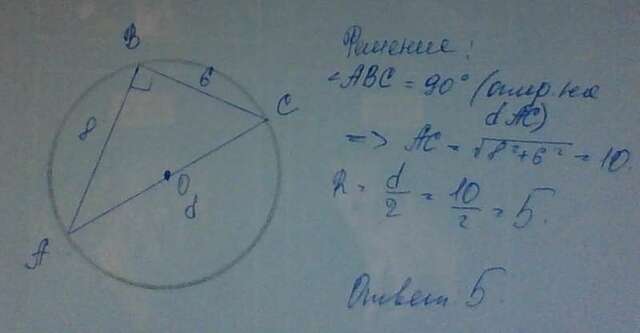 B
6
C
8
O
d
A
Решение:
∠ABC = 90° (опир. на
d AC)
=> AC = √8²+6² = 10.
R = d/2 = 10/2 = 5.
Ответ 5.